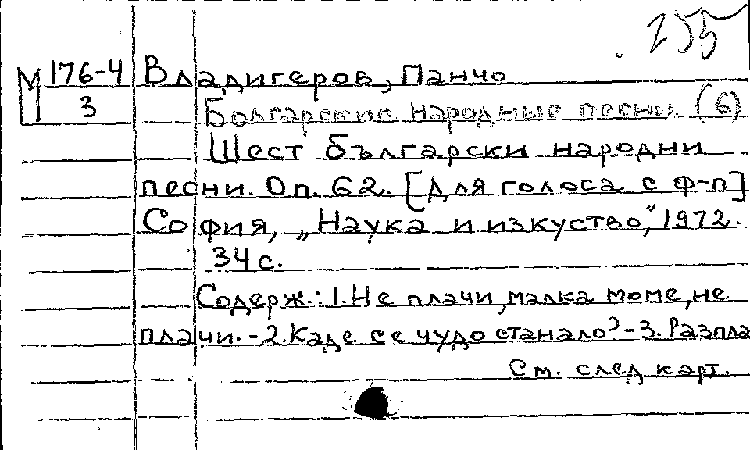 255
М 176-4 Владигеров, Панчо
3 Болгарские народные песни. (6)
Шест български народни
песни. Оп. 62. [Для голоса с ф-п]
София, „Наука и изкуство", 1972.
34 с.
Содерж.: 1. Не плачи, малка моме, не
плачи. - 2. Каде се чудо станало? - 3. Разпла
См. след карт.